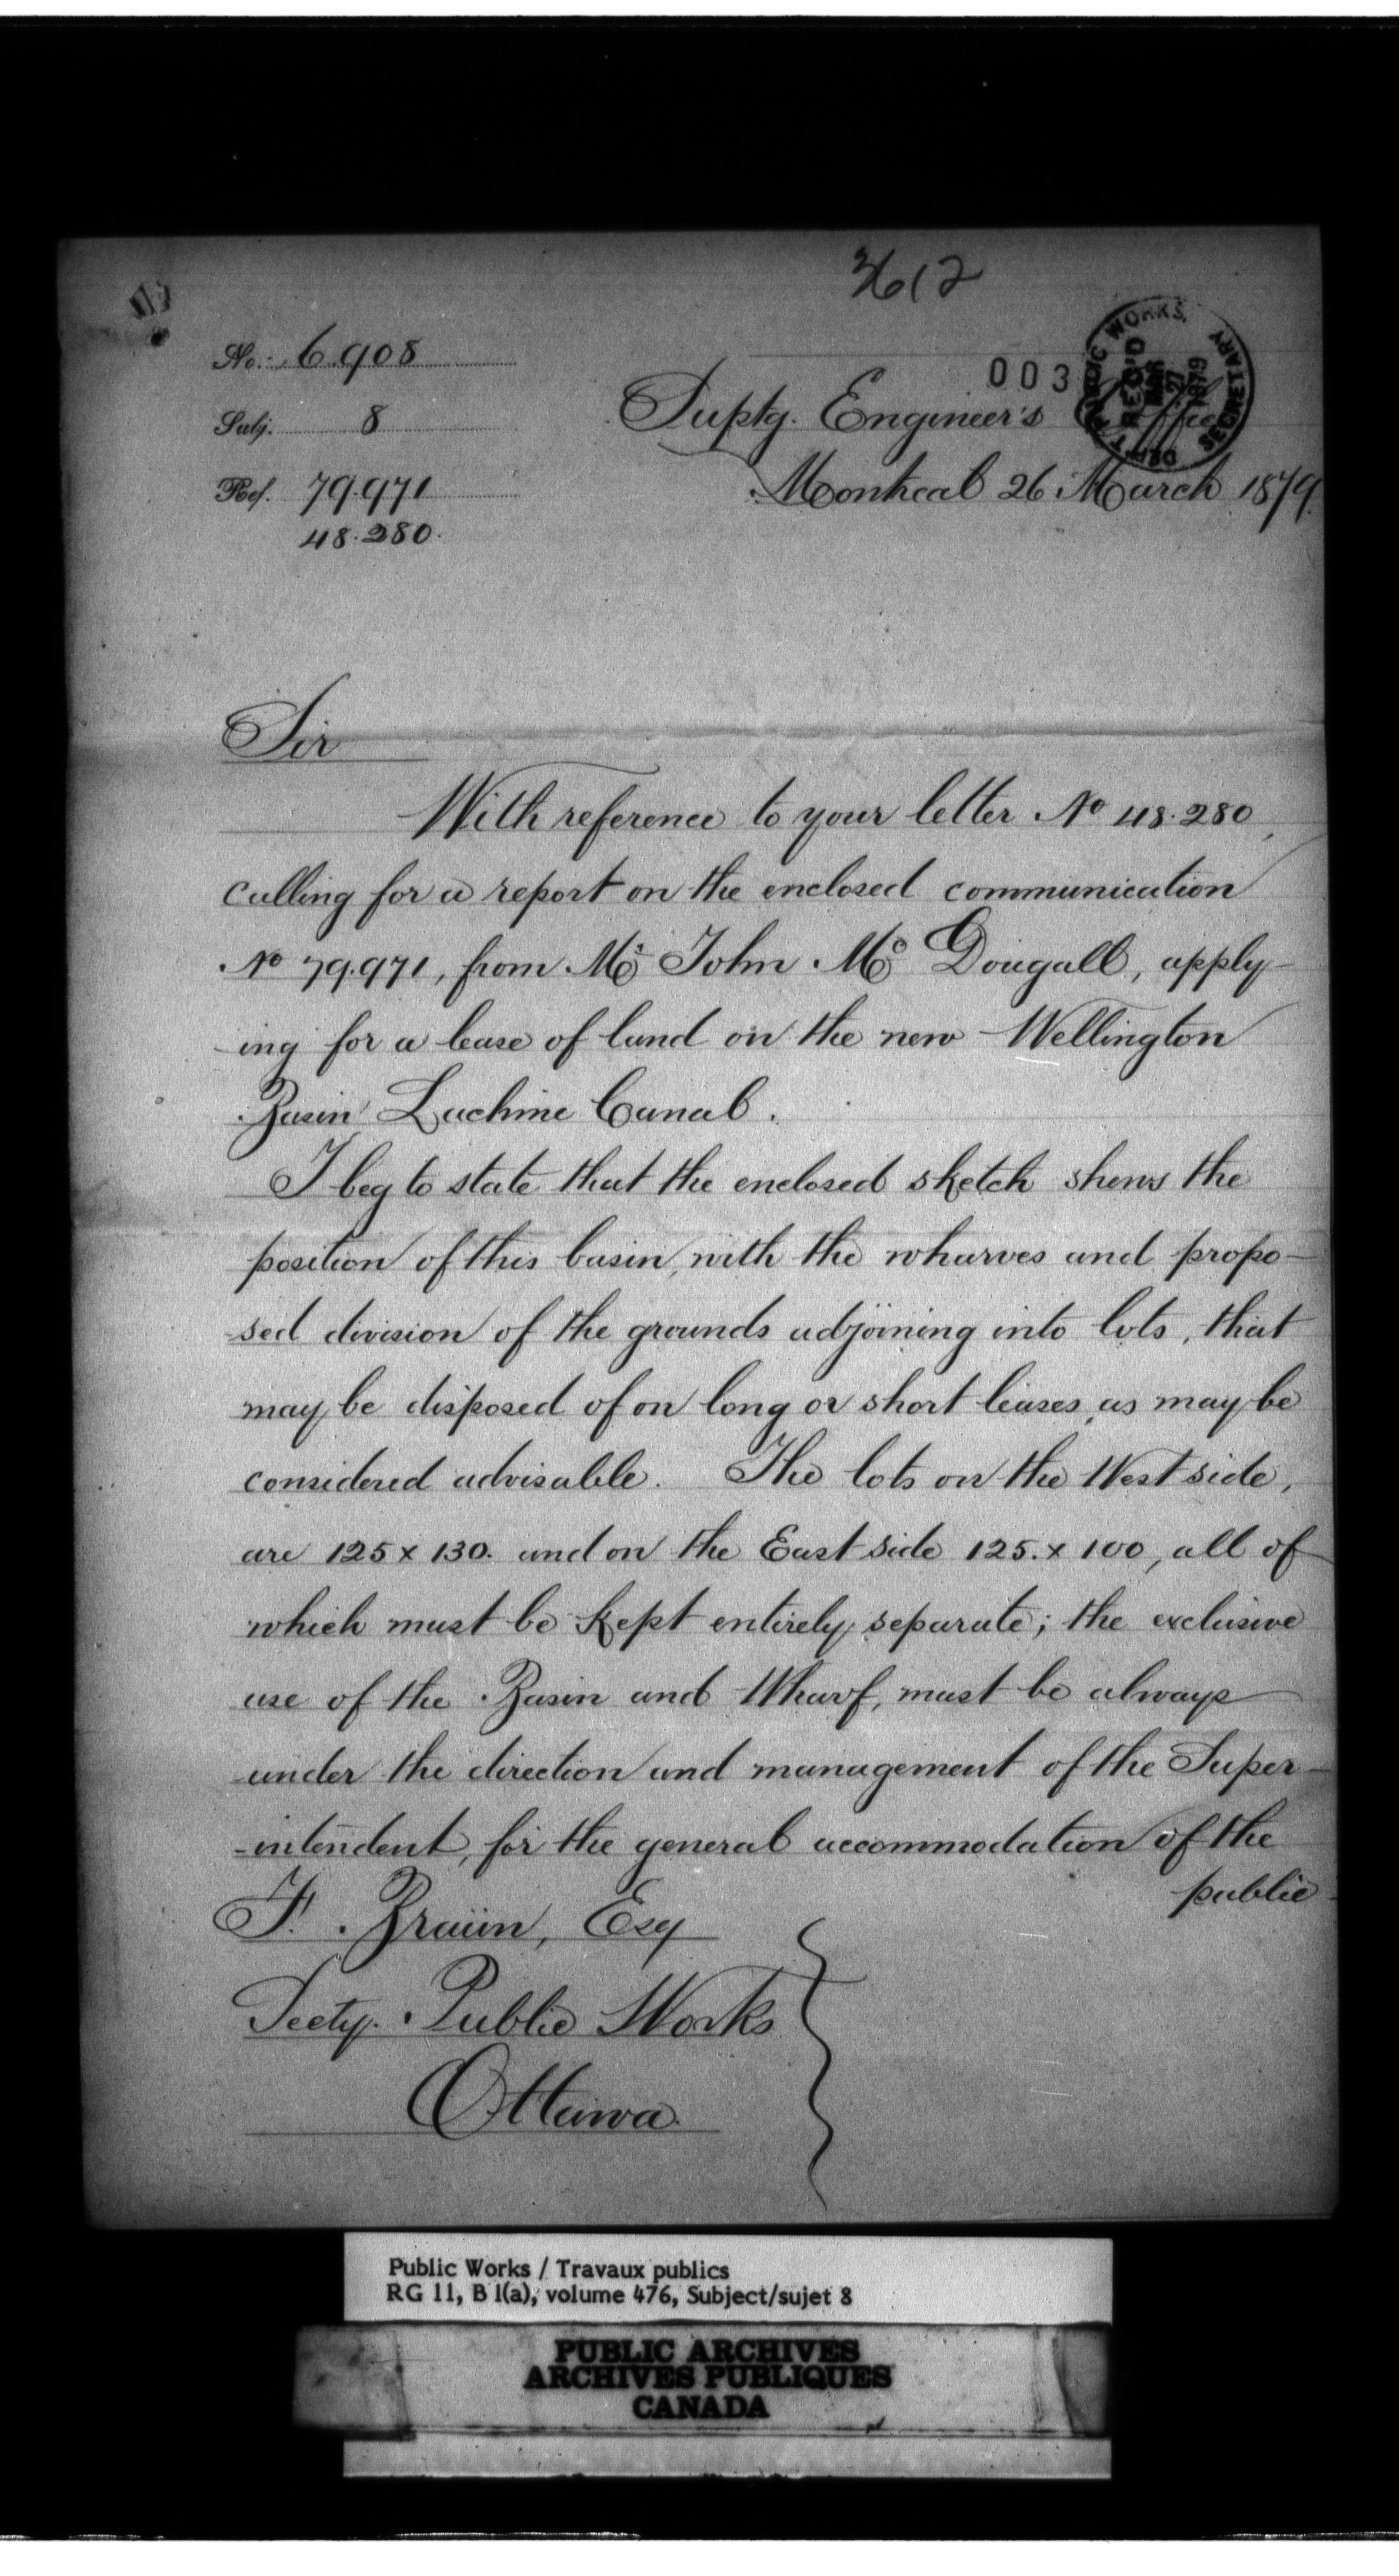 3612
No. 6.908
Subj. 8
Ref. 79.971
48.280.
003
DEPT PUBLIC WORKS.
REC'D
MAR
27
1879
SECRETARY
Suptg. Engineer's Office
Montreal 26 March 1879.
Sir
With reference to your letter No 48.280,
calling for a report on the enclosed communication
No 79.971, from Mr John Mc Dougall, apply-
ing for a lease of land on the new Wellington
Basin Lachine Canal.
I beg to state that the enclosed sketch shews the
position of this basin, with the wharves and propo-
sed division of the grounds adjoining into lots, that
may be disposed of on long or short leases, as may be
considered advisable. The lots on the West side,
are 125 x 130. and on the East side 125. x 100, all of
which must be kept entirely separate; the exclusive
use of the Basin and Wharf, must be always
under the direction and management of the Super-
-intendent, for the general accommodation of the
public
F. Braün, Esq
Secty. Public Works
Ottawa.
Public Works / Travaux publics
RG 11, B 1(a), volume 476, Subject/sujet 8
PUBLIC ARCHIVES
ARCHIVES PUBLIQUES
CANADA